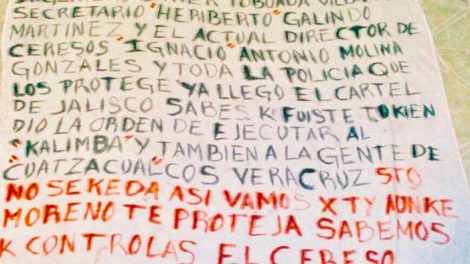 SECRETARIO "HERIBERTO" GALINDO
MARTINEZ Y EL ACTUAL DIRECTOR DE
CERESOS "IGNACIO" ANTONIO MOLINA
GONZALES Y TODA LA POLICIA QUE
LOS PROTEGE YA LLEGO EL CARTEL
DE JALISCO SABES K FUISTE TOKIEN
DIO LA ORDEN DE EJECUTAR AL
"KALIMBA" Y TAMBIEN A LA GENTE DE
CUATZACUALCOS VERACRUZ STO
NO SEKEDA ASI VAMOS X TY AUNKE
MORENO TE PROTEJA SABEMOS
K CONTROLAS EL CERESO